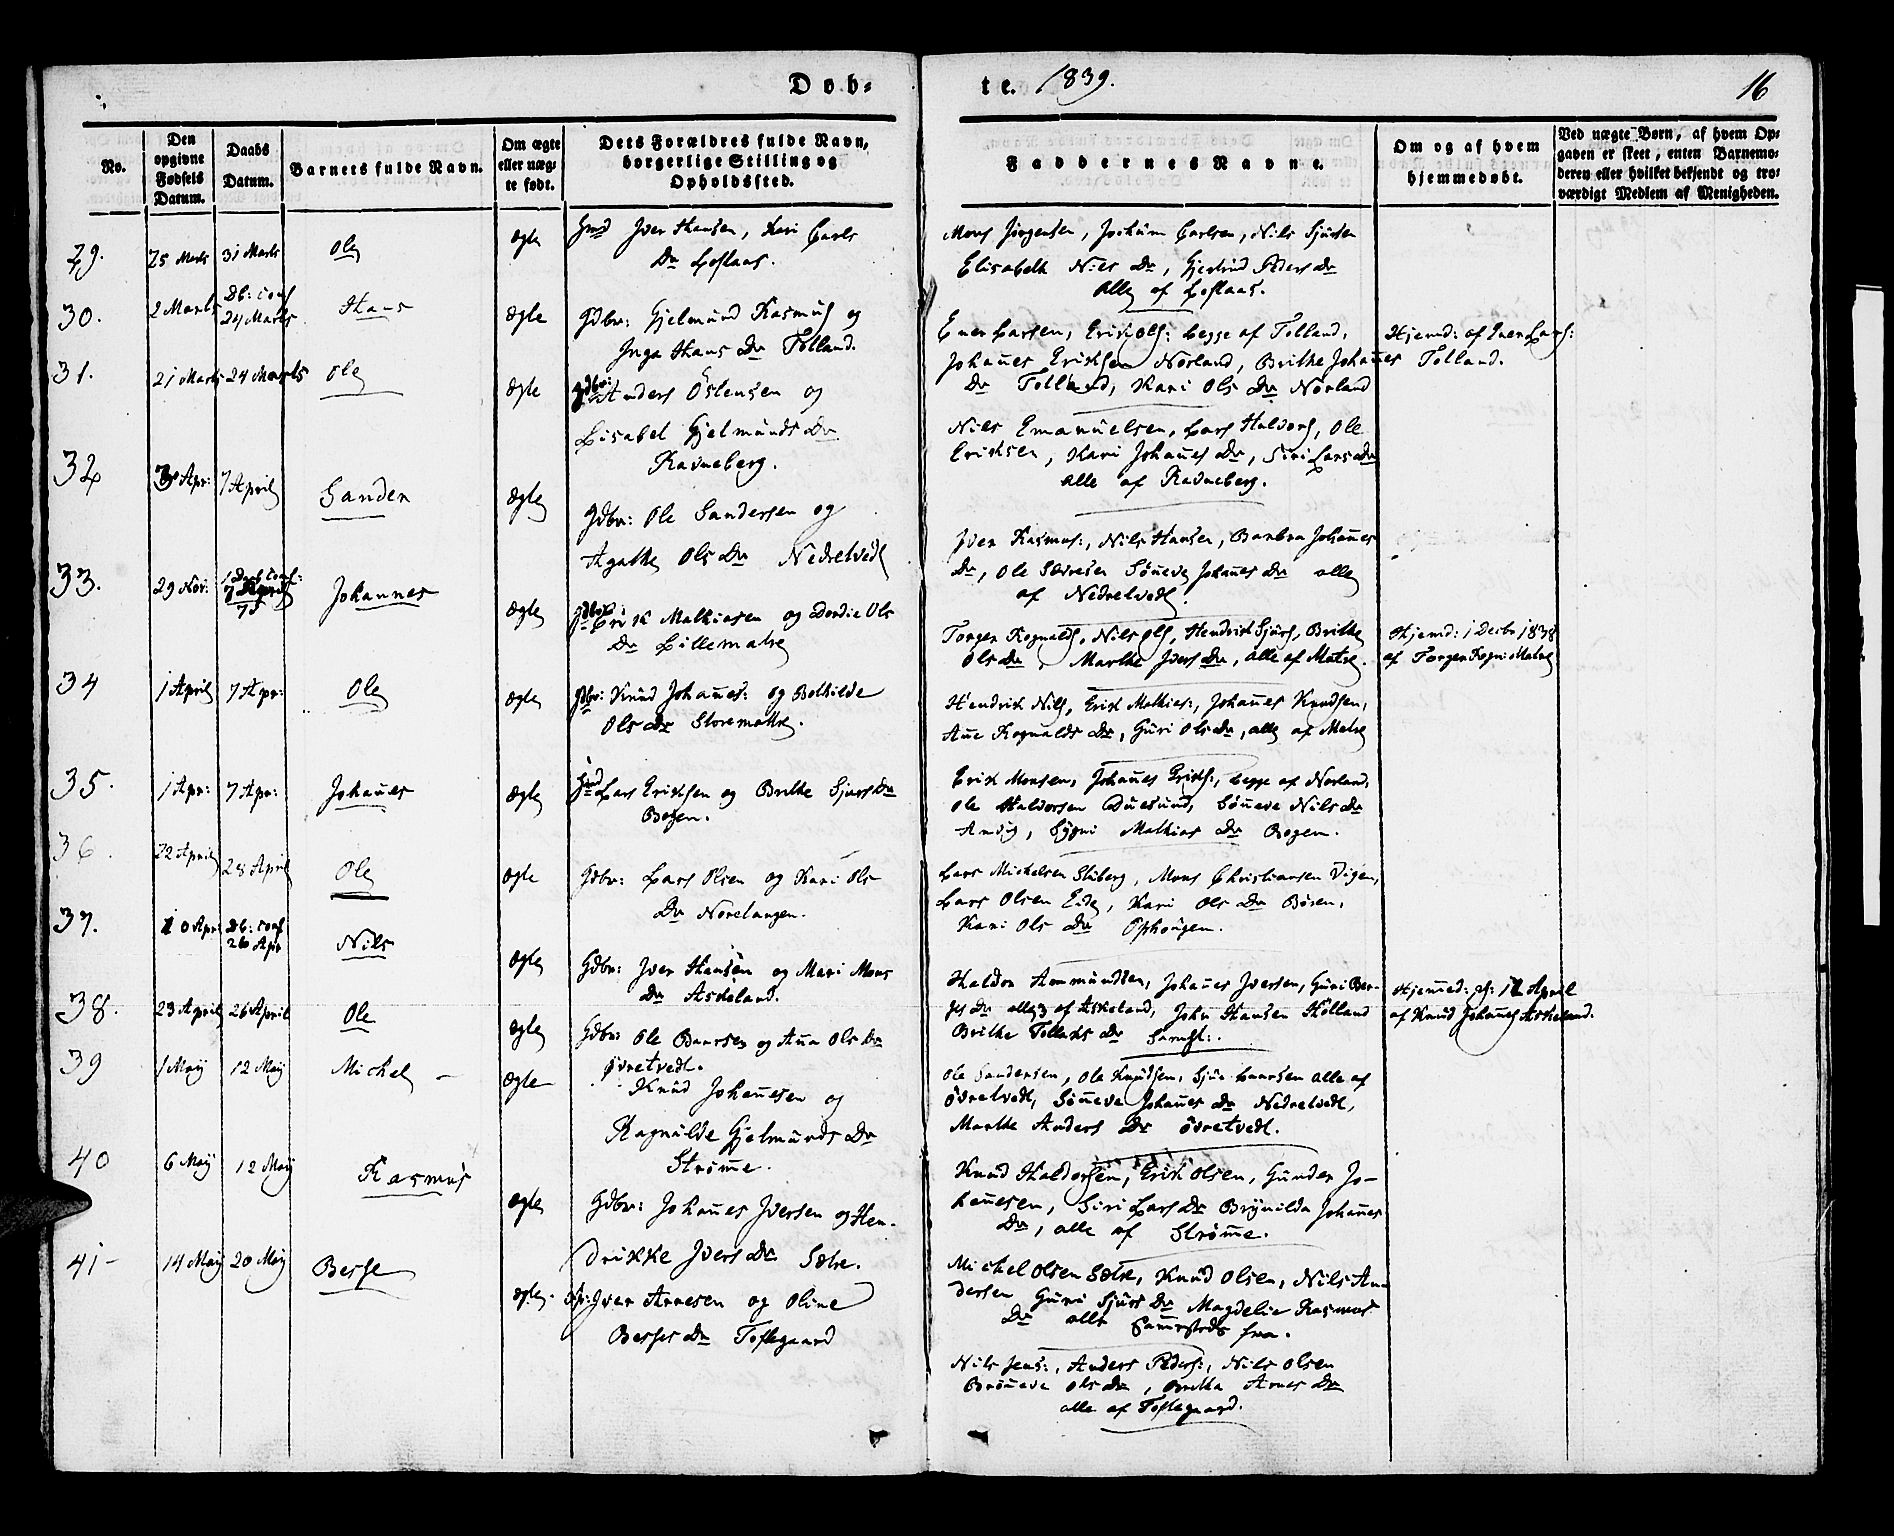 Døb-
te. 1839.
16
No.
Den opgivne Fødsels Datum.
Daabs Datum.
Barnets fulde Navn.
Om ægte eller uægte født.
Dets Forældres fulde Navn, borgerlige Stilling og Opholdssted.
Faddernes Navne.
Om og af hvem hjemmedøbt.
Ved uægte Børn, af hvem Opgaven er skeet, enten Barnemoderen eller hvilket bekjendt og troværdigt Medlem af Menigheden.
29. 25 Marts 31 Marts Ole ægte
Iver Hansen, Kari Carls
Dr
Mons Jörgensen, Jochum Carlsen, Nils Sjursen
Elisabeth Nils Dr, Gjertrud Peders Dr
alle af
30. 2 Marts Db: conf 24 Marts Hans ægte
Gdbr: Gjelmund Rasmus og
Inga Hans Dr Tolland.
Ener Larsen, Erik Ols: begge af Tolland,
Johannes Eriksen Nörland, Brithe Johannes
Dr Tolland, Kari Ols Dr Nörland
Hjemd: af Ener Lars:
Tolland.
31. 21 Marts 24 Marts Ole ægte
Gdbr: Anders Östensen og
Lisabet Gjelmunds Dr
Ravneberg.
Nils Emanuelsen, Lars Haldors, Ole
Eriksen, Kari Johannes Dr, Siri Lars Dr
alle af Ravneberg.
32 Apr: 7 April Sander ægte
Gdbr: Ole Sandersen og
Agathe Ols Dr Nedretvedt
Iver Rasmus:, Nils Hansen, Barbra Johannes
Dr, Ole Sævresen Sönneve Johannes Dr alle
af Nedretvedt.
33. 29 Nov: Johannes ægte
Erik Mathiasen og Dordie Ols
Dr Lillematre
Torger Rognalds, Nils Ols, Hendrik Sjurs, Brithe
Ols Dr, Marthe Ivers Dr, alle af Matre.
Hjemd: 1 Decbr 1838
af Torger Rogn: Matre
34 1 April 7 Apr: Ole ægte
Gdbr: Knud Johannes: og Bothilde
Ols Dr Storematre.
Hendrik Nils, Erik Mathies:, Johannes Knudsen,
Anne Rognalds Dr, Guri Ols Dr, alle af Matre
35. 1 Apr: 7 Apr: Johannes ægte
Lars Eriksen og Brithe Sjurs Dr
Bogen.
Erik Monsen, Johannes Eriks:, begge af Nörland,
Ole Haldorsen Duesund, Sönneve Nils Dr
Andvig, Sygni Mathias Dr Bogen.
36. 22 April 28 April Ole ægte
Gdbr: Lars Olsen og Kari Ols
Dr Nordtangen.
Lars Michelsen Skiberg, Mons Christiansen Vigen,
Lars Olsen Eide, Kari Ols Dr Böien,
Kari Ols Dr Ophougen.
37. 10 Apr: Db: conf 26 Apr Nils ægte
Gdbr: Iver Hansen og Mari Mons
Dr Askeland.
Haldor Anmundsen, Johannes Iversen, Guri Ber-
ges Dr alle 3 af Askeland, John Hansen Holland
Brithe Tollaks Dr
Hjemmed: d: 12 April
af Knud Johannes Askeland.
38. 23 April 26 April Ole ægte
Gdbr: Ole Baarsen og Anna Ols Dr
Övretvedt.
Ole Sandersen, Ole Knudsen, Sjur Baarsen alle af
Övretvedt, Sönneve Johannes Dr Nedretvedt,
Marthe Anders Dr Övretvedt.
39 1 May 12 May Michel – ægte
Knud Johannesen og
Ragnilde Gjelmunds Dr
Strömme.
Knud Haldorsen, Erik Olsen, Gunder Jo-
hannesen, Siri Lars Dr Brynilda Johannes
Dr, alle af Strömme.
40 6 May 12 May Rasmus ægte
Gdbr: Johannes Iversen og Hen-
drikke Ivers Dr Sætre.
Michel Olsen Sætre, Knud Olsen, Nils An-
dersen Guri Sjurs Dr Magdelie Rasmus
Dr alle sammesteds fra.
41 – 14 May 20 May Berge ægte
Iver Arnesen og Oline
Berges Dr Toftegaard
Nils Jens:, Anders Peders:, Nils Olsen
Brönneve Ols Dr, Britha Arnes Dr
alle af Toftegaard.